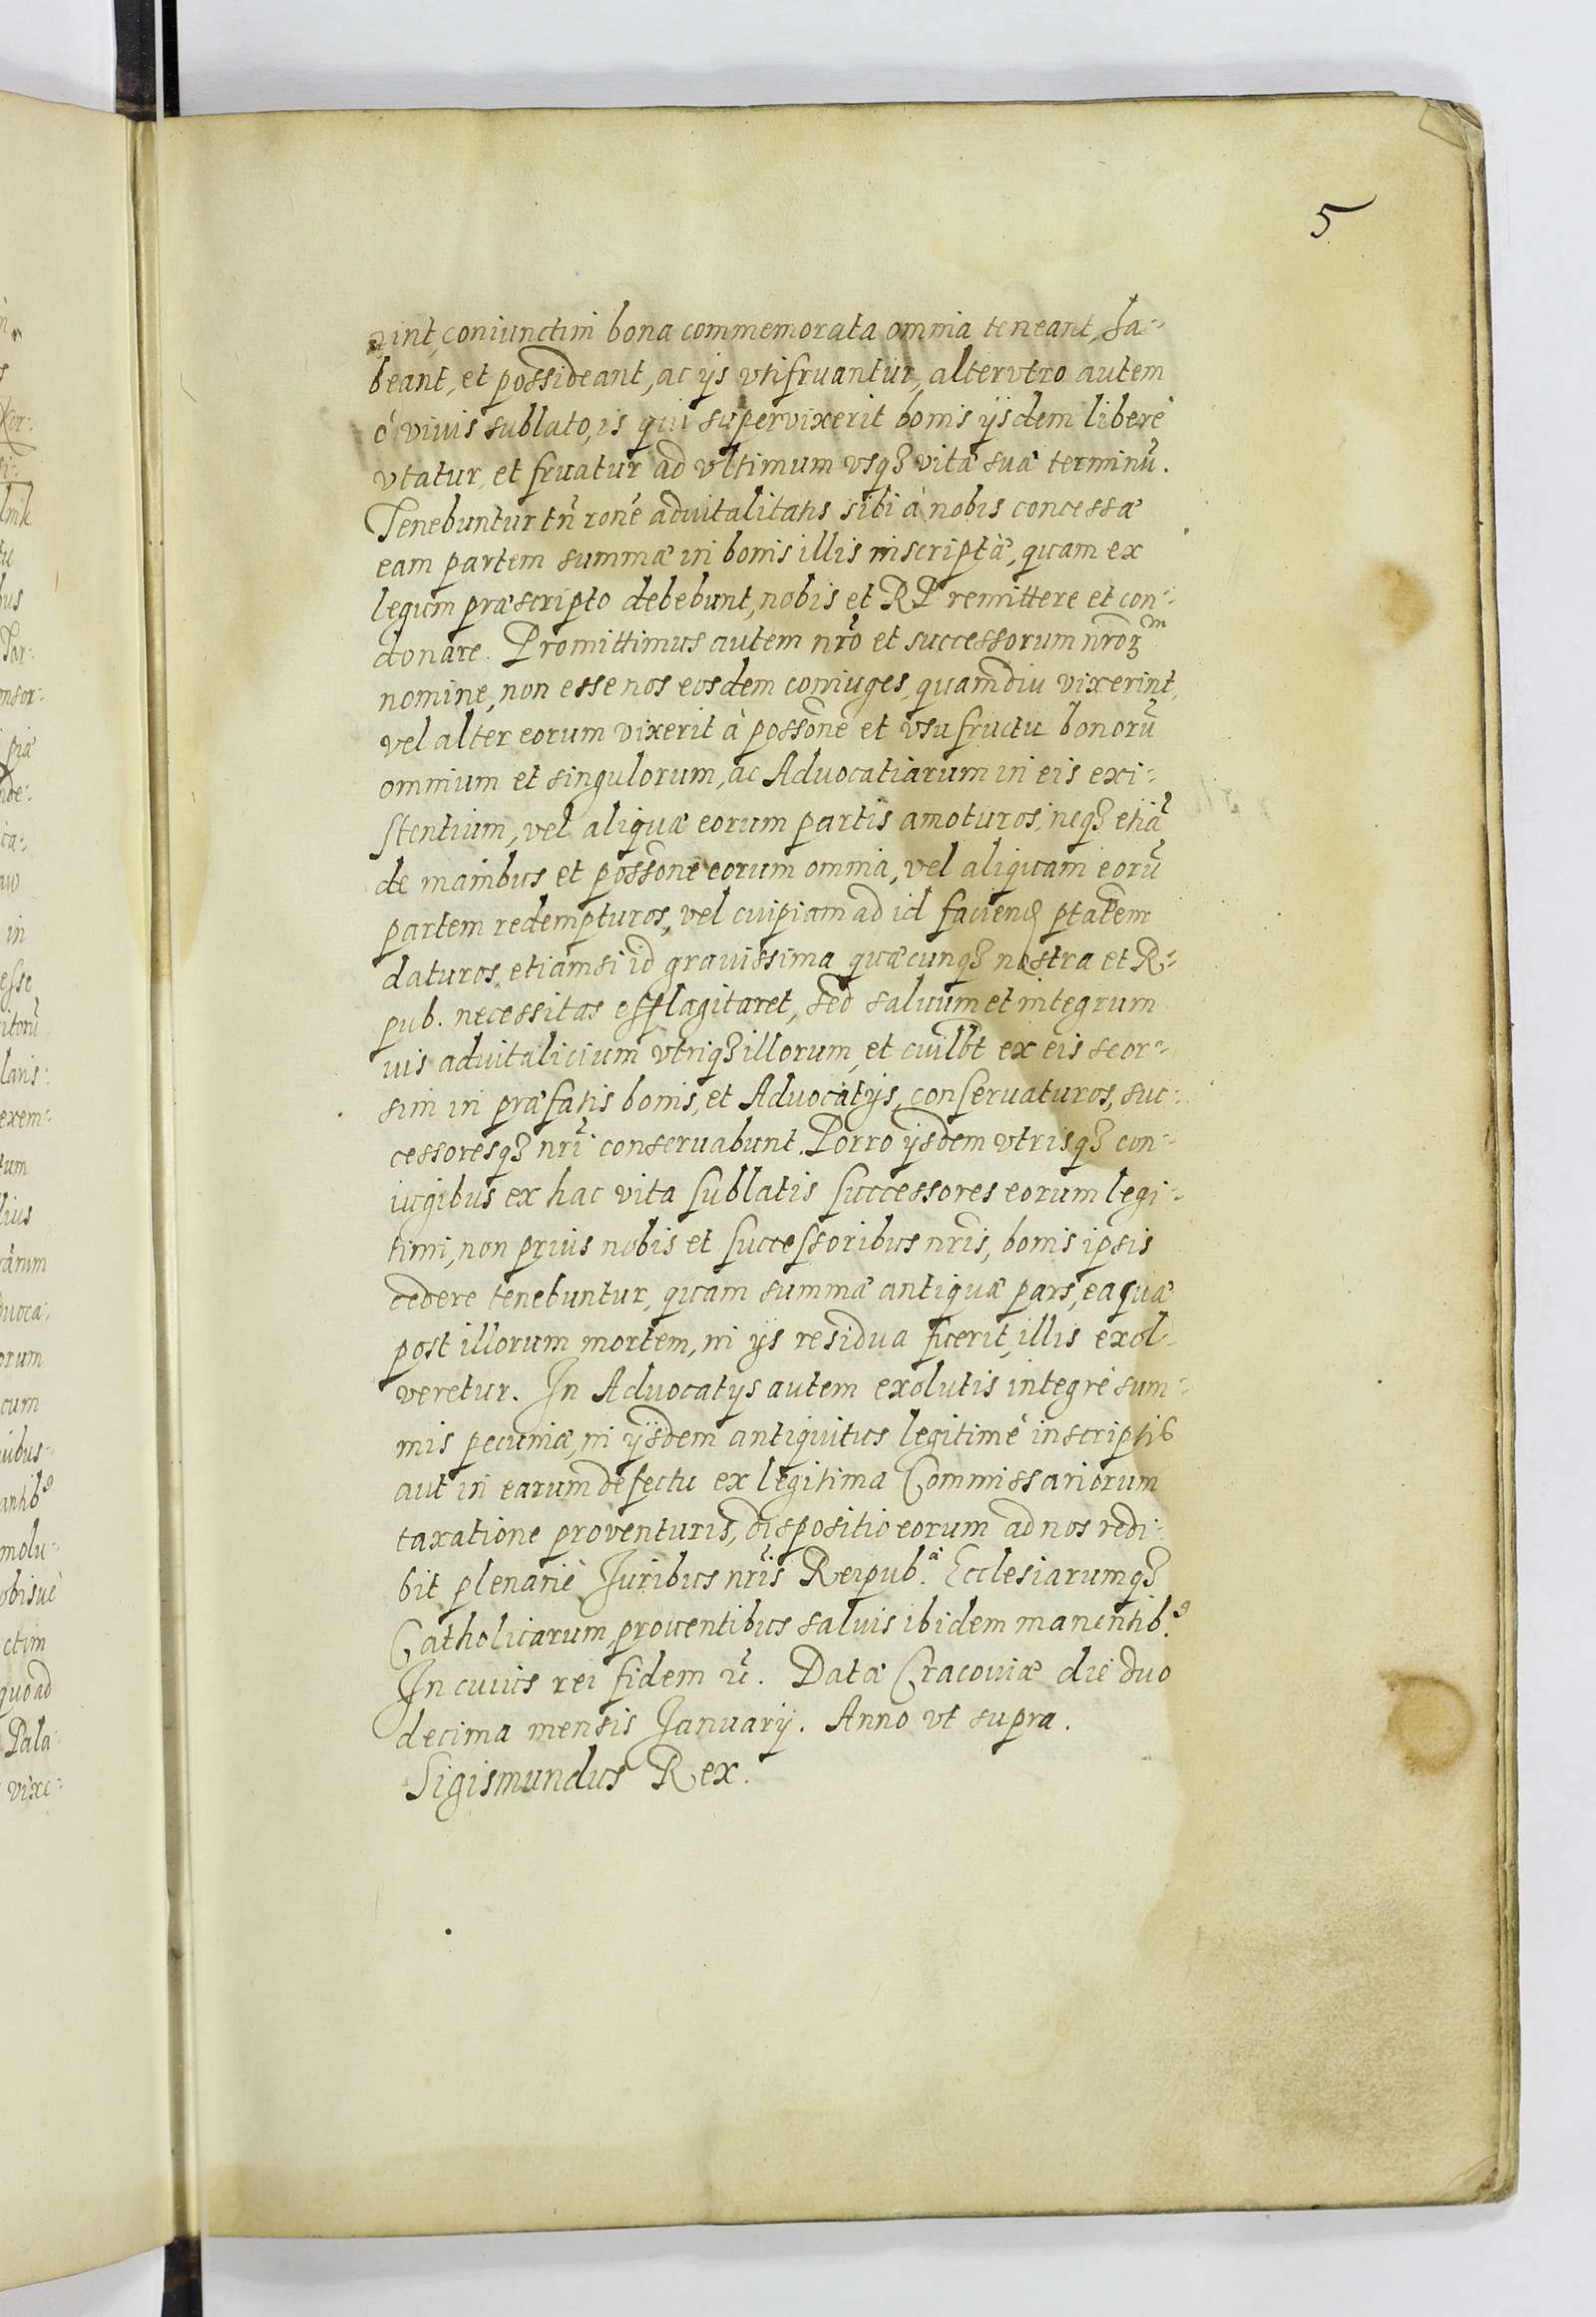 5
rint, coniunctim bona commemorata omnia teneant, ha-
beant, et possideant, ac ijs vtifruantur, altervtro autem
è viuis sublato, is qui supervixerit bonis ijsdem liberè
vtatur, et fruatur ad vltimum vsq₃ vitæ suæ terminũ.
Tenebuntur tñ rone advitalitatis sibi à nobis concessæ
eam partem summæ in bonis illis inscriptæ, quam ex
legum præscripto debebunt, nobis et RP remittere et con-
donare. Promittimus autem nro et successorum nroꝝ
nomine, non esse nos eosdem coniuges, quamdiu vixerint,
vel alter eorum vixerit à possone et vsufructu bonorũ
omnium et singulorum, ac Advocatiarum in eis exi-
stentium, vel aliquæ eorum partis amoturos, neq₃ etiã
de manibus et possone eorum omnia, vel aliquam eorũ
partem redempturos, vel cuipiam ad id faciend ptatem
daturos, etiamsi id grauissima quæcunq₃ nostra et R-
pub. necessitas efflagitaret, sed saluum et integrum
ius advitalicium vtriq₃ illorum, et cuilbt ex eis seor-
sim in præfatis bonis, et Advocatijs, conservaturos, suc-
cessoresq₃ nri conservabunt. Porro ijsdem vtrisq₃ con-
iugibus ex hac vita sublatis successores eorum legi-
timi, non prius nobis et successoribus nris, bonis ipsis
cedere tenebuntur, quam summæ antiquæ pars, ea quæ
post illorum mortem, in ijs residua fuerit, illis exol-
veretur. In Advocatijs autem exolutis integrè sum-
mis pecuniæ, in ijsdem antiquitus legitimè inscriptis
aut in earum defectu ex legitima Commissariorum
taxatione proventuris, dispositio eorum ad nos redi-
bit plenariè Juribus nris Reipub. Ecclesiarumq₃
Catholicarum, prouentibus saluis ibidem manentib.⁹
In cuius rei fidem ũ. Datæ Cracoviæ die duo
decima mensis Januarij. Anno vt supra.
Sigismundus Rex.